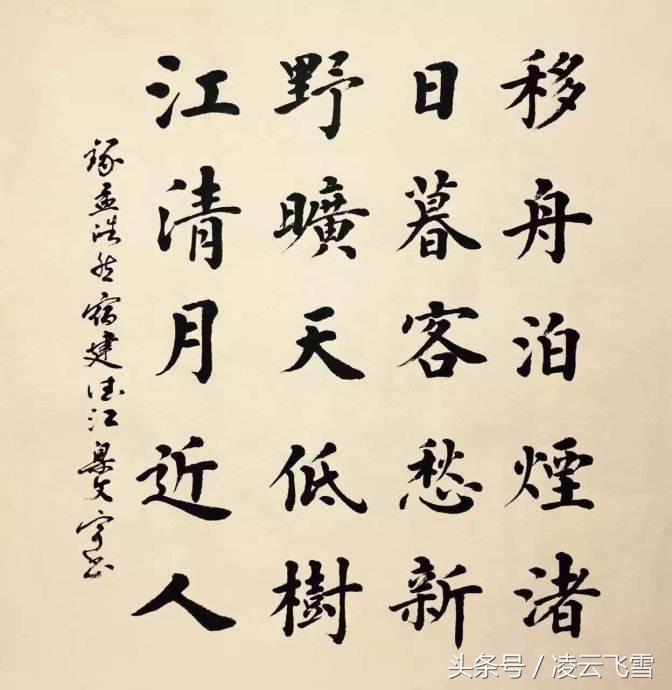 移舟泊煙渚
日暮客愁新
野曠天低樹
江清月近人
孟浩然宿建德江
头条号 / 凌云飞雪